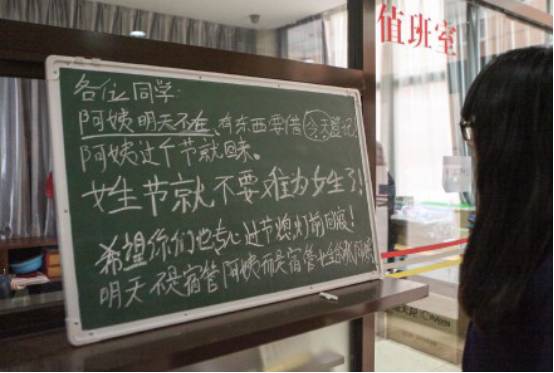 值班室
各位同学:
阿姨明天不在,有东西要借今天登记
阿姨过个节就回来。
女生节就不要难为女生了!
希望你们也专心过节熄灯前回寝!
明天不是宿管阿姨而是宿管女生